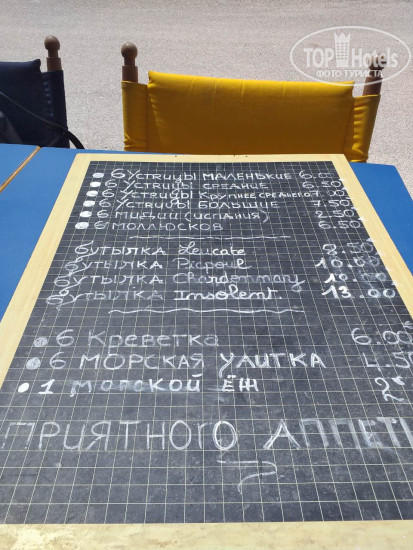 TOP Hotels
ФОТО ТУРИСТА
6 УSTRИЦЫ МАЛЕНЬКИЕ 6.00
6 УSTRИЦЫ СРЕДНИЕ 6.50
6 УSTRИЦЫ КРУПНЕЕ СРЕДНЕГО 7.00
6 УSTRИЦЫ БОЛЬШИЕ 7.50
6 МИДИИ (ИСПАНИЯ) 2.50
6 МОЛЛЮСКОВ 6.50
БУТЫЛКА Leucate
БУТЫЛКА Picpoul 10.00
БУТЫЛКА Chardonnay 10.00
БУТЫЛКА Insolent. 13.00
6 Креветка 6.00
6 МОРСКАЯ УЛИТКА 4.5
1 МОРСКОЙ ЁЖ 2€
ПРИЯТНОГО АППЕТИ